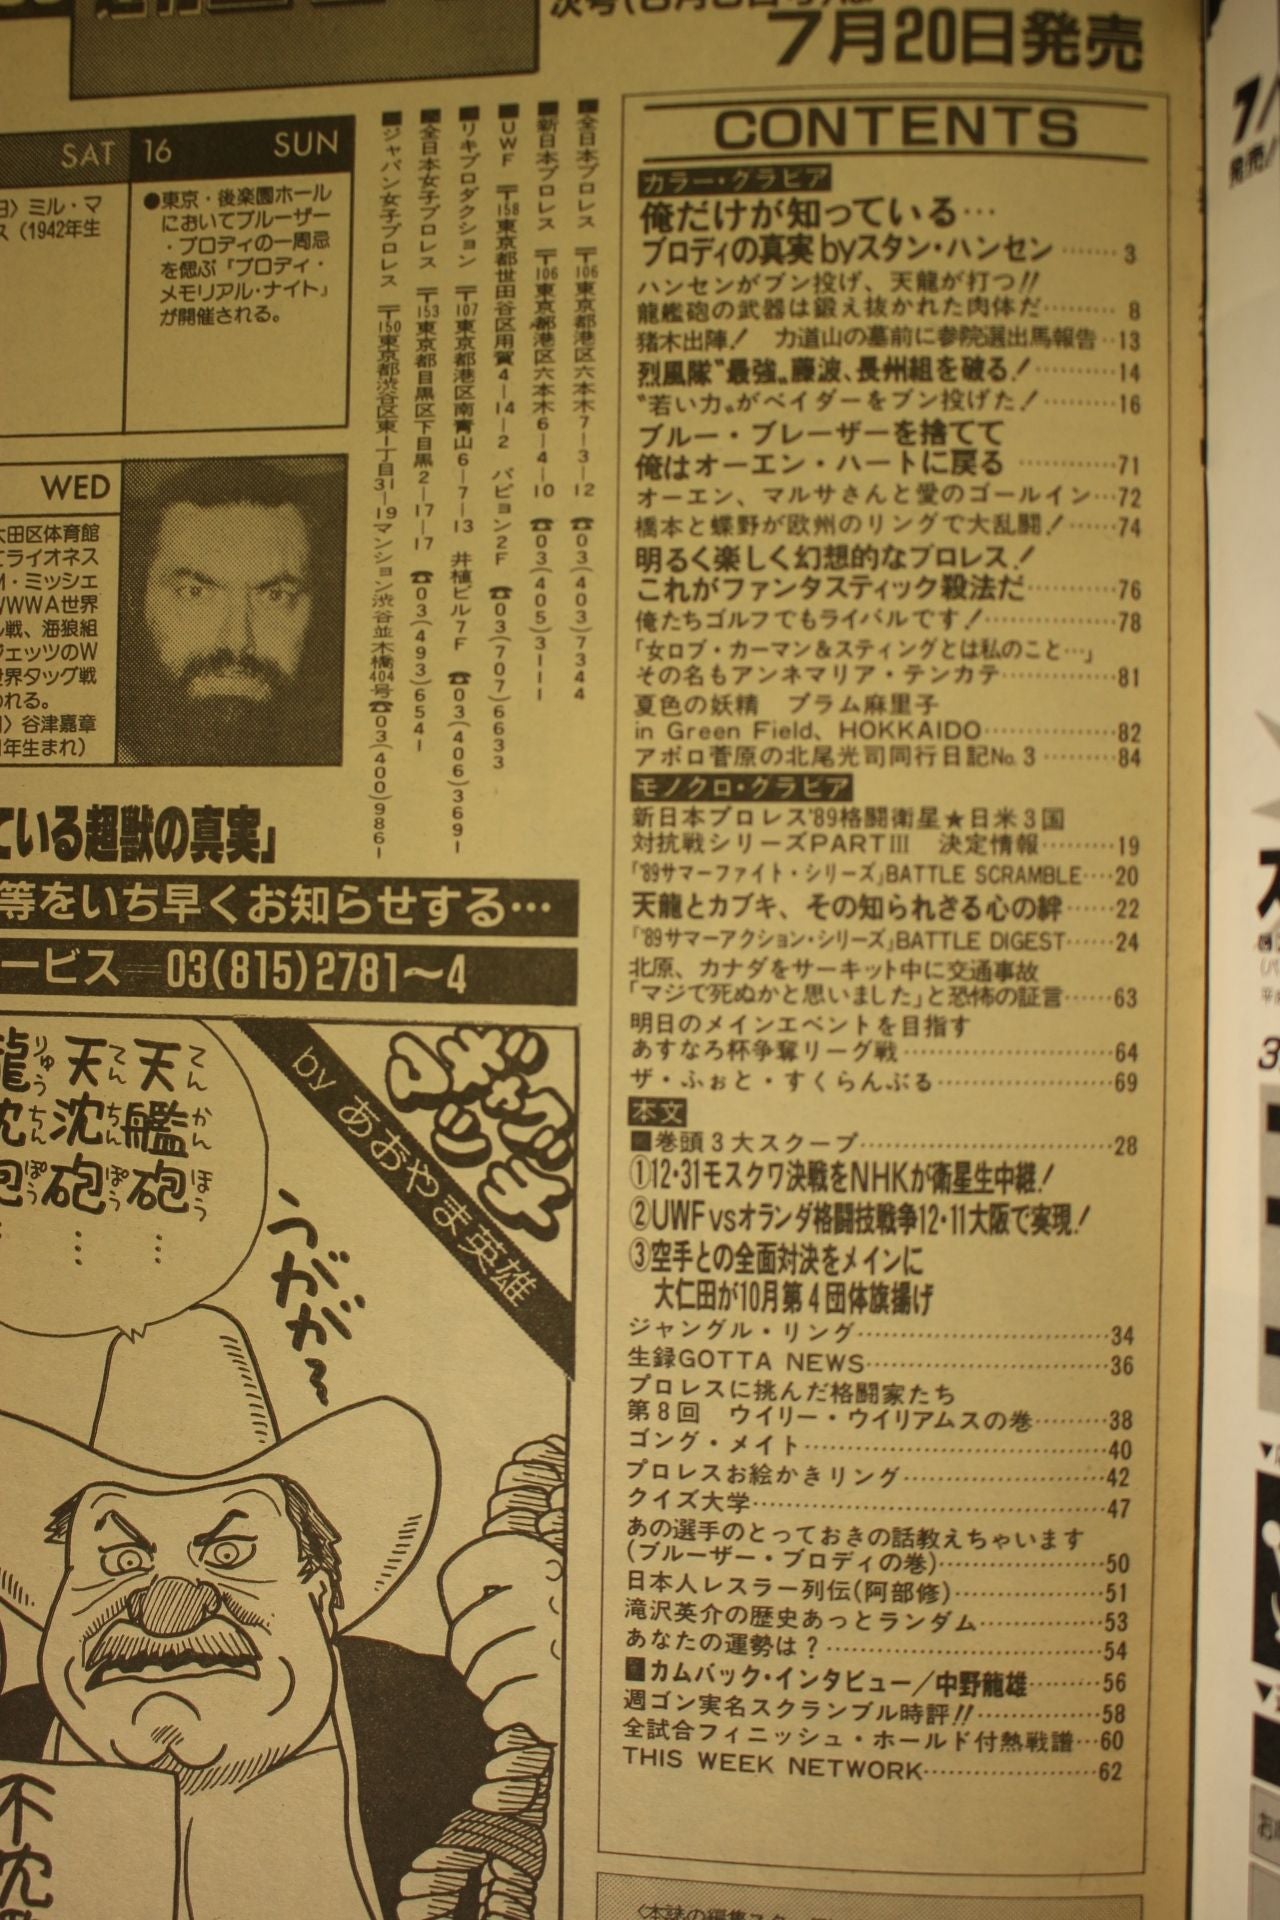 7月20日発売
SAT
16 SUN
●東京・後楽園ホール
においてブルーザー
・ブロディの一周忌
を偲ぶ「ブロディ・
メモリアル・ナイト」
が開催される。
ミル・マ
ス（1942年生
WED
大田区体育館
ライオネス
M・ミッシェ
WWA世界
戦、海狼組
ジェッツのW
世界タッグ戦
われる。
谷津嘉章
年生まれ）
■全日本プロレス 〒106東京都港区六本木7-3-12 ☎03(403)7344
■新日本プロレス 〒106東京都港区六本木6-4-10 ☎03(405)3111
■UWF 〒158東京都世田谷区用賀4-14-2 パビヨン2F ☎03(707)6633
■リキプロダクション 〒107東京都港区南青山6-7-13 井植ビル7F ☎03(406)3691
■全日本女子プロレス 〒153東京都目黒区下目黒2-17-17 ☎03(493)6541
■ジャパン女子プロレス 〒150東京都渋谷区東1丁目31-19マンション渋谷並木橋404号☎03(400)9861
ている超獣の真実」
等をいち早くお知らせする…
ービス 03(815)2781〜4
by あおやま英雄
天艦砲…
てんかんほう
天沈砲…
てんちんぽう
龍沈砲
りゅうちんぽう
うがが〜
不沈
CONTENTS
カラー・グラビア
俺だけが知っている…
ブロディの真実byスタン・ハンセン……3
ハンセンがブン投げ、天龍が打つ!!
龍艦砲の武器は鍛え抜かれた肉体だ……8
猪木出陣! 力道山の墓前に参院選出馬報告…13
烈風隊“最強„藤波、長州組を破る!……14
“若い力„がベイダーをブン投げた!……16
ブルー・ブレーザーを捨てて
俺はオーエン・ハートに戻る……71
オーエン、マルサさんと愛のゴールイン…72
橋本と蝶野が欧州のリングで大乱闘!……74
明るく楽しく幻想的なプロレス!
これがファンタスティック殺法だ……76
俺たちゴルフでもライバルです!……78
「女ロブ・カーマン&スティングとは私のこと…」
その名もアンネマリア・テンカテ……81
夏色の妖精 プラム麻里子
in Green Field、HOKKAIDO……82
アポロ菅原の北尾光司同行日記No.3……84
モノクロ・グラビア
新日本プロレス'89格闘衛星★日米3国
対抗戦シリーズPARTⅢ 決定情報……19
「'89サマーファイト・シリーズ」BATTLE SCRAMBLE…20
天龍とカブキ、その知られざる心の絆……22
「'89サマーアクション・シリーズ」BATTLE DIGEST……24
北原、カナダをサーキット中に交通事故
「マジで死ぬかと思いました」と恐怖の証言……63
明日のメインエベントを目指す
あすなろ杯争奪リーグ戦……64
ザ・ふぉと・すくらんぶる……69
本文
■巻頭3大スクープ……28
①12・31モスクワ決戦をNHKが衛星生中継!
②UWFvsオランダ格闘技戦争12・11大阪で実現!
③空手との全面対決をメインに
大仁田が10月第4団体旗揚げ
ジャングル・リング……34
生録GOTTA NEWS……36
プロレスに挑んだ格闘家たち
第8回 ウイリー・ウイリアムスの巻……38
ゴング・メイト……40
プロレスお絵かきリング……42
クイズ大学……47
あの選手のとっておきの話教えちゃいます
(ブルーザー・ブロディの巻)……50
日本人レスラー列伝(阿部修)……51
滝沢英介の歴史あっとランダム……53
あなたの運勢は?……54
■カムバック・インタビュー／中野龍雄……56
週ゴン実名スクランブル時評!!……58
全試合フィニッシュ・ホールド付熱戦譜…60
THIS WEEK NETWORK……62